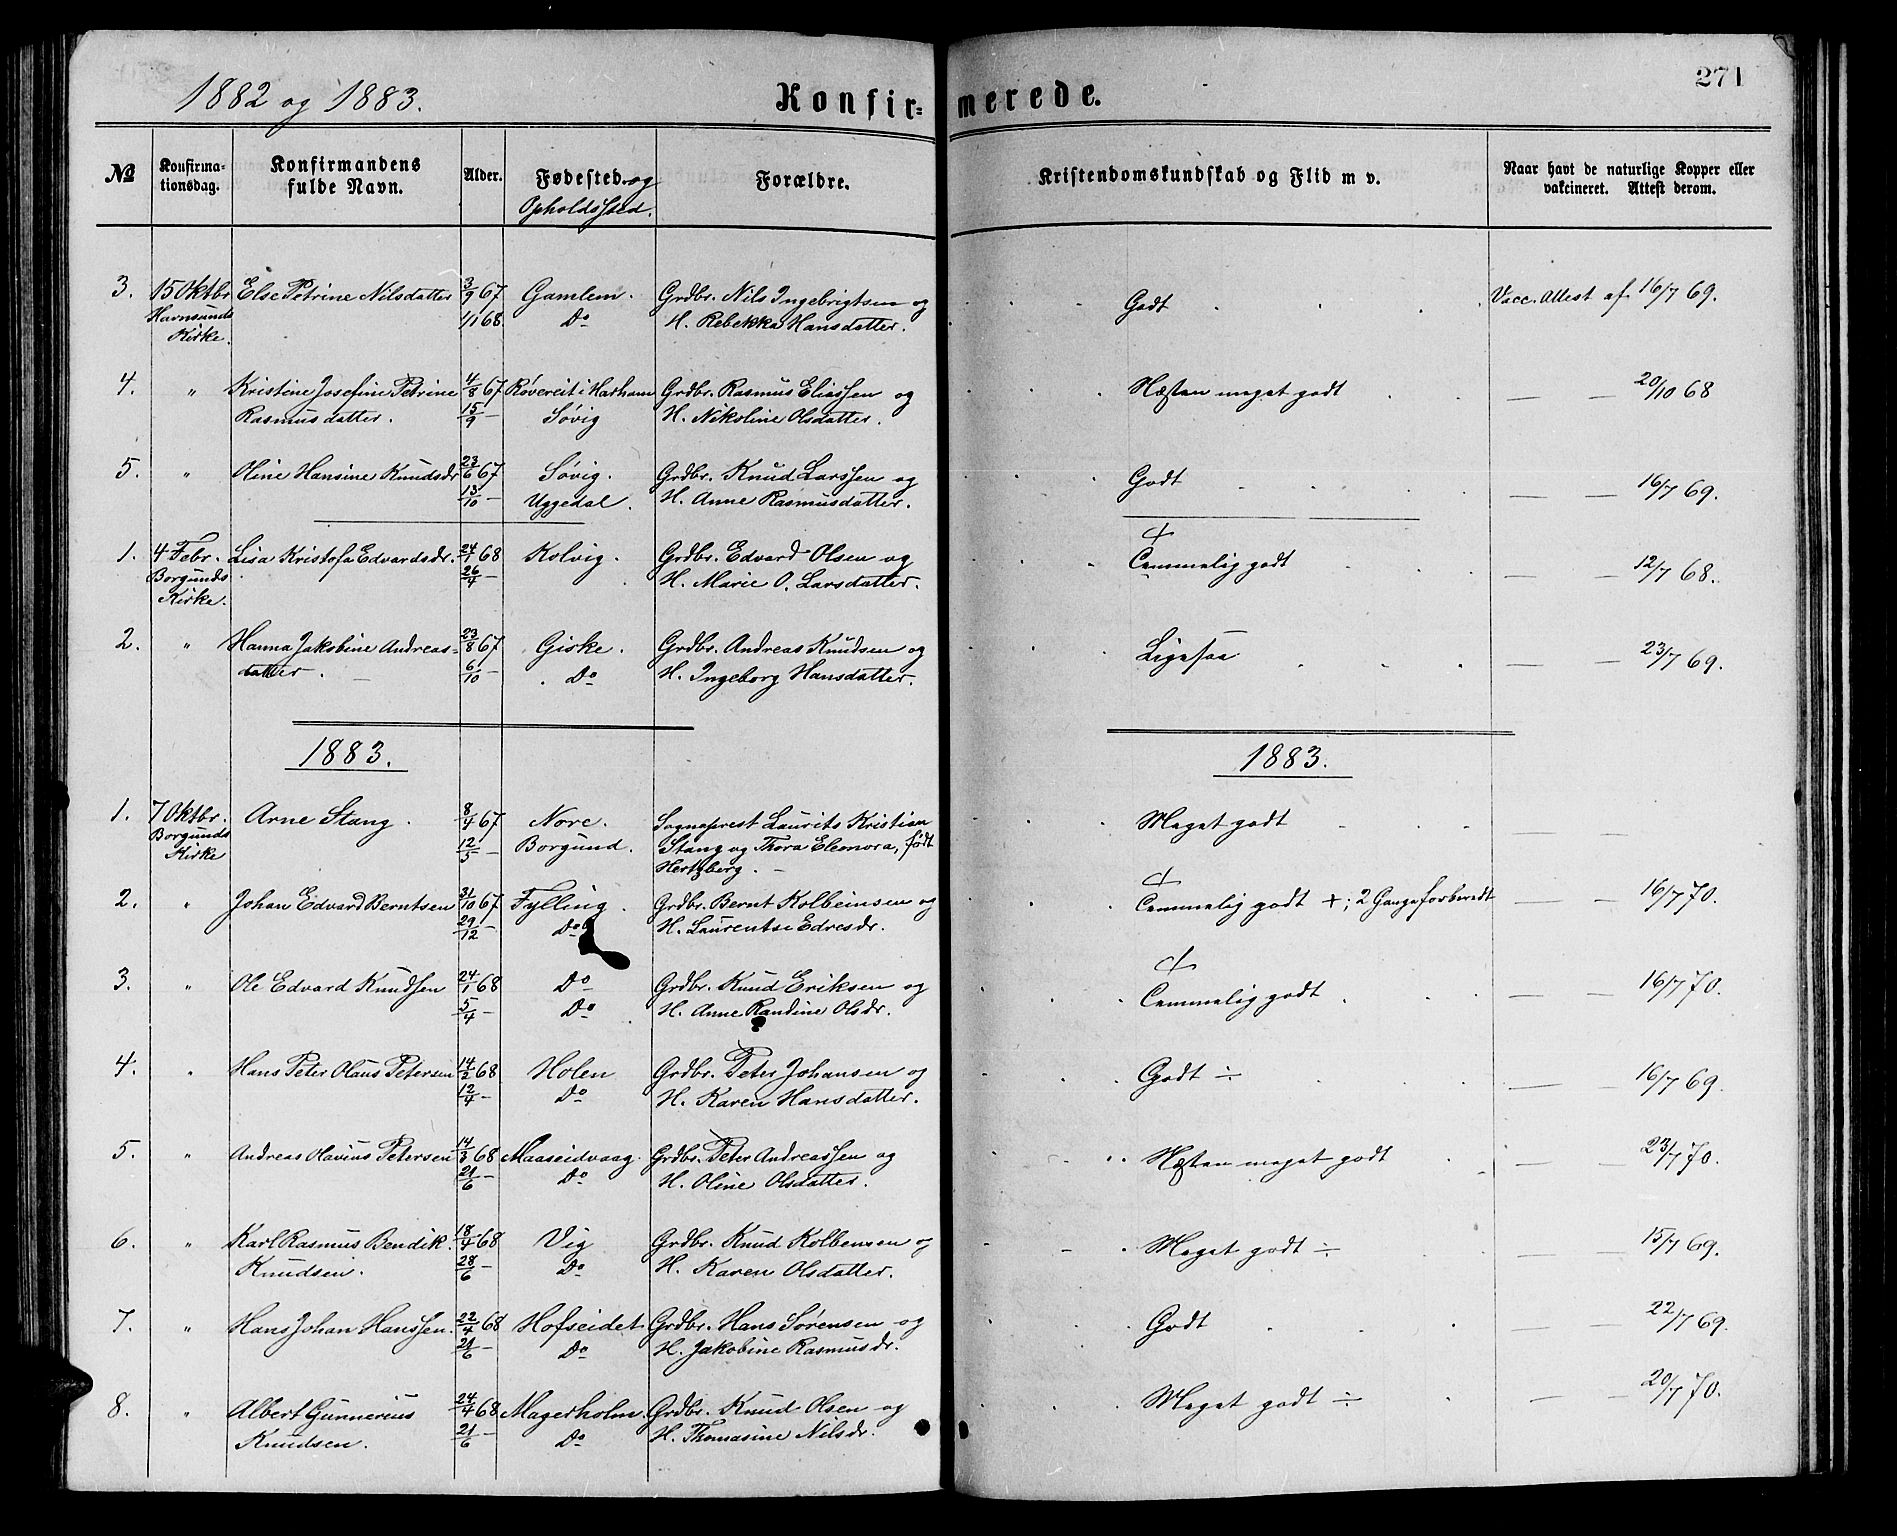 1882 og 1883.
Konfirmerede.
271
№ Konfirmationsdag. Konfirmandens fulde Navn. Alder. Fødested og Opholdssted. Forældre. Kristendomskundskab og Flid m v. Naar havt de naturlige Kopper eller vakcineret. Attest derom.
3. 15 Oktbr Else Petrine Nilsdatter 3/9 67 Gamlem. Grdbr. Nils Ingebrigtsen og Godt Vacc. Attest af 16/7 69.
Havnsunds 1/1 68. Do H. Rebekka Hansdatter.
Kirke.
4. " Kristine Josefine Petrine 4/8 67 Røvereit i Harham Grdbr. Rasmus Eliassen og Næsten meget godt — — 20/10 68
Rasmusdatter. 15/9 — Søvig H. Nikoline Olsdatter.
5. " Oline Hansine Knudsdr 23/6 67 Søvig. Grdbr. Knud Larssen og Godt — — 16/7 69.
13/10 — Uggedal. H. Anne Rasmusdatter.
1. 4 Febr. Lisa Kristofa Edvardsdr. 24/1 68 Kolvig. Grdbr. Edvard Olsen og Temmelig godt — — 12/7 68.
Borgunds 26/4 H. Marie O. Larsdatter.
Kirke.
2. " Hanna Jakobine Andreas- 23/8 67 Giske. Grdbr. Andreas Knudsen og Ligesaa — — 23/7 69.
datter. 6/10 — Do H. Ingeborg Hansdatter.
1883. 1883.
1. 7 Oktbr. Arne Stang. 8/4 67 Nore. Sogneprest Laurits Kristian Meget godt — —
Borgunds 12/5 — Borgund. Stang og Thora Eleonora, født
Kirke Hertzberg. —
2. " Johan Edvard Berntsen 31/10 67 Fylling. Grdbr. Bernt Kolbeinsen og Temmelig godt +; 2 Gange forberedt — — 16/7 70.
29/12 — Do H. Laurentse Edresdr.
3. " Ole Edvard Knudsen 24/1 68 Do Grdbr. Knud Eriksen og Temmelig godt — — 16/7 70.
5/4 — Do H. Anne Randine Olsdr.
4. " Hans Peter Olaus Petersen 14/2 68 Holen Grdbr. Peter Johansen og Godt ÷ — — 16/7 69.
12/4 — Do H. Karen Hansdatter.
5. " Andreas Olavius Petersen 14/3 68 Maaseidvaag. Grdbr. Peter Andreassen og Næsten meget godt — — 23/7 70.
21/6 — Do H. Oline Olsdatter.
6. " Karl Rasmus Bendik. 18/4 68 Vig Grdbr. Knud Kolbensen og Meget godt ÷ — — 15/7 69.
Knudsen. 28/6 — Do H. Karen Olsdatter.
7. " Hans Johan Hanssen. 22/4 68 Hofseidet Grdbr. Hans Sørensen og Godt — — 22/7 69.
21/6 — Do H. Jakobine Rasmusdr.
8. " Albert Gunnerius 24/4 68 Magerholm. Grdbr. Knud Olsen og Meget godt ÷ — — 20/7 70.
Knudsen. 21/6 — Do H. Thomasine Nilsdr.